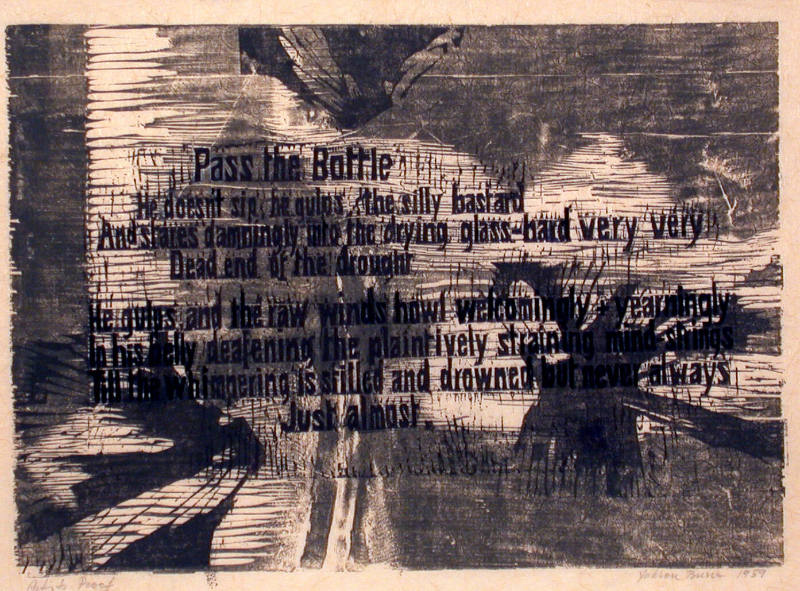 Pass the Bottle
He doesn't sip, he gulps, the silly bastard
And stares damningly into the drying glass-hard very very
Dead end of the drought
He gulps and the raw winds howl welcomingly + yearningly
In his belly deafening the plaintively straining mind-strings
Till the whimpering is stilled and drowned but never always
Just almost.
Artists Proof 1959